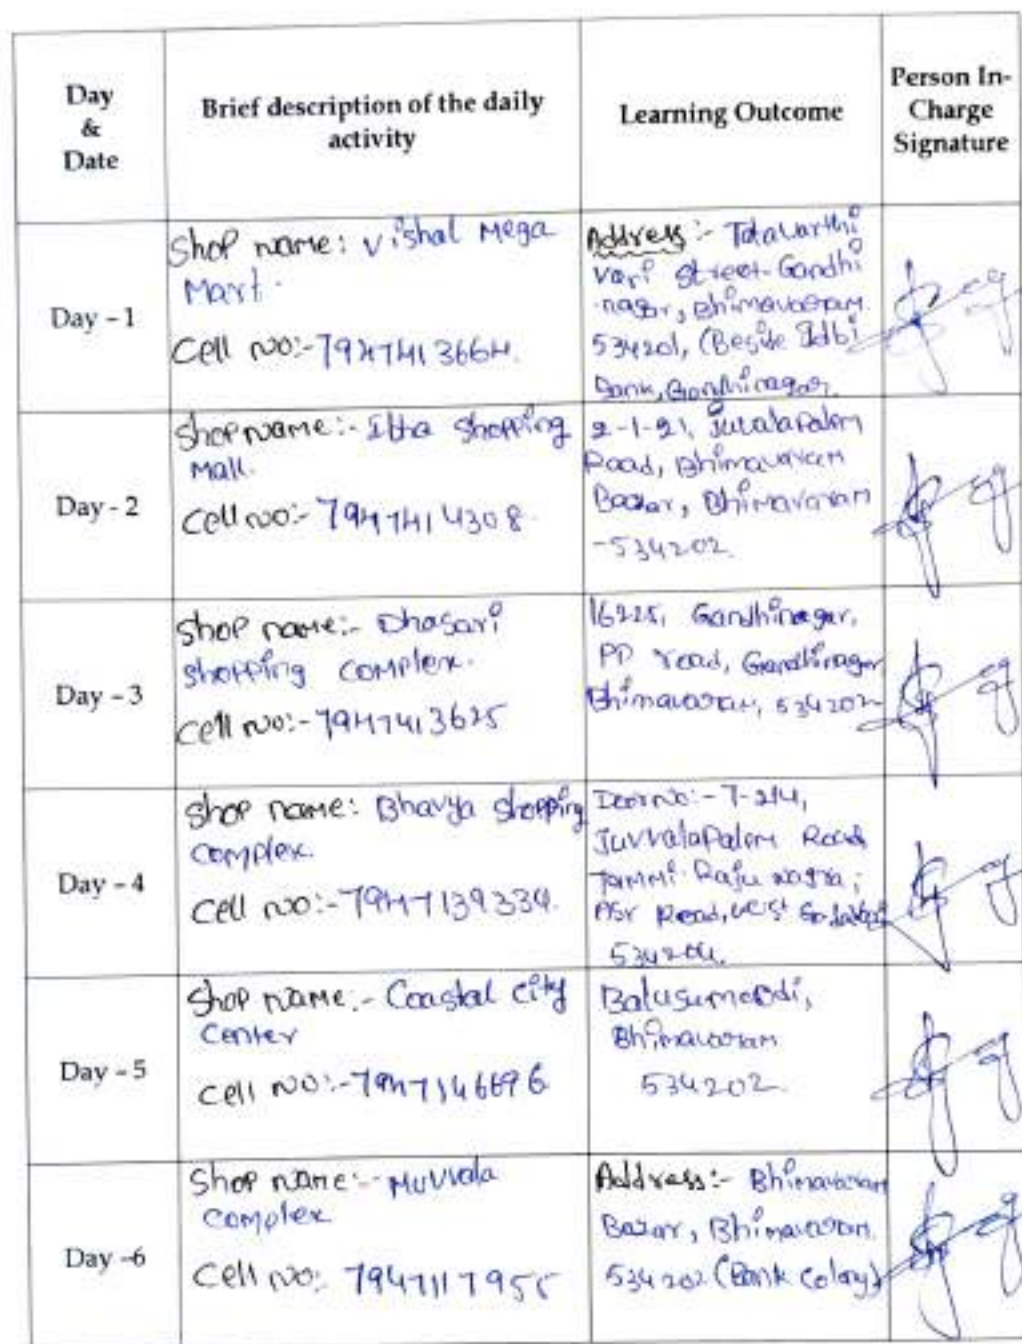 Day
&
Date
Brief description of the daily
activity
Learning Outcome
Person In-
Charge
Signature
Day – 1
Shop name: Vishal Mega
Mart.
Cell no:- 7947413664.
Address:- Totavarthi
vari street-Gandhi
nagar, Bhimavaram.
534201, (Beside Idbi
Bank, Gandhinagar.
Day - 2
Shop name:- Itha Shopping
Mall.
Cell no:- 7947414308.
2-1-21, Juvalapalem
Road, Bhimavaram
Bazar, Bhimavaram
-534202.
Day – 3
Shop name:- Dhasari
Shopping complex.
Cell no:- 7947413625
16225, Gandhinagar,
PP road, Gandhinagar
Bhimavaram, 534202
Day – 4
Shop name: Bhavya Shopping
complex.
Cell no:- 7947139334.
Door no:- 7-214,
Juvvalapalem Road
Tammi Raju nagra,
Road, west Godavari
Day – 5
Shop name:- Coastal city
Center
Cell no:- 7947146696
Bhimavaram
534202.
Day –6
Shop name:- Muvvala
complex
Cell no:- 7947117955
Address:- Bhimavaram
Bazar, Bhimavaram.
534202 (Bank Colony)